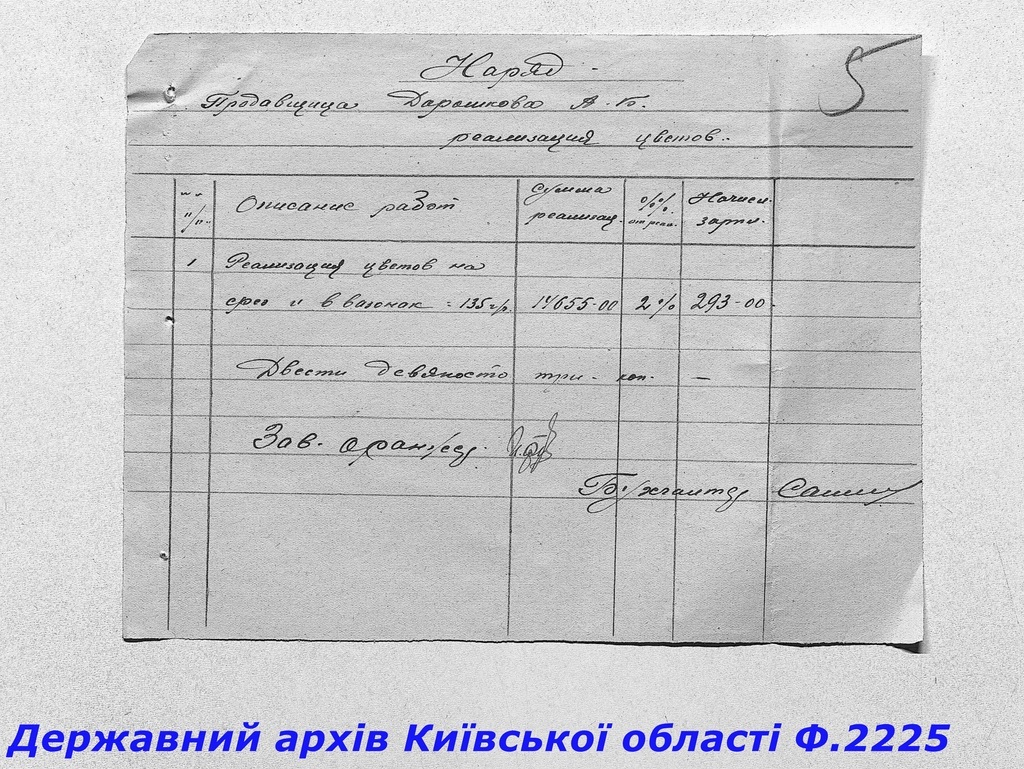 5
Наряд -
Продавщица Дарошкова А. Б.
реализация цветов.
№ № п/п Описание работ Сумма реализац. %% от реал. Начисл. зарпл.
1 Реализация цветов на
срез и в вазонах = 135 г/р. 14655-00 2% 293-00-
Двести девяносто три - коп. -
Зав. оранж
Бухгалтер
Державний архів Київської області Ф.2225